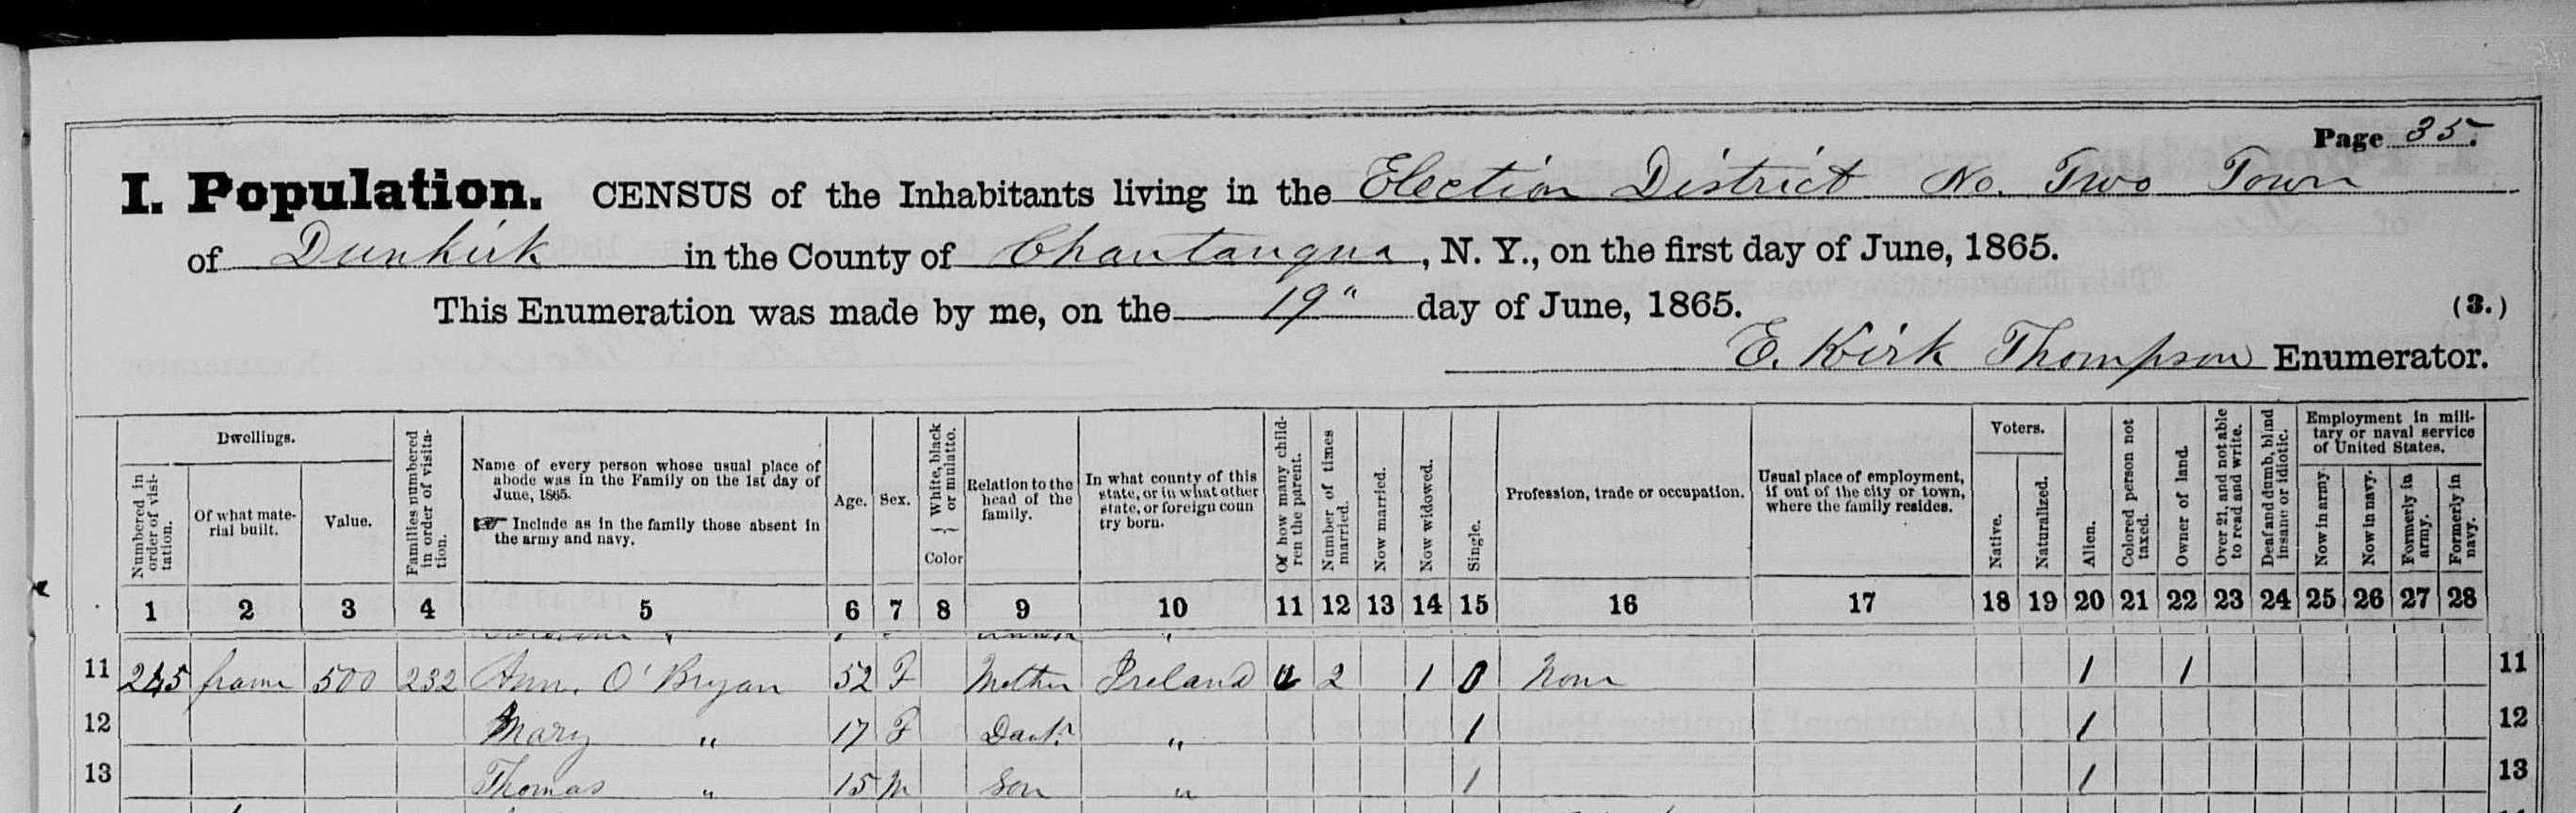 Page 35.
I. Population. CENSUS of the Inhabitants living in the Election District No. Two Town
of Dunkirk in the County of Chautauqua, N. Y., on the first day of June, 1865.
This Enumeration was made by me, on the 19" day of June, 1865. (3.)
E. Kirk Thompson Enumerator.
Dwellings.
Numbered in order of visi-
tation.
Of what mate-
rial built.
Value.
Families numbered
in order of visita-
tion.
Name of every person whose usual place of
abode was in the Family on the 1st day of
June, 1865.
☞ Include as in the family those absent in
the army and navy.
Age.
Sex.
White, black
or mulatto.
Color
Relation to the
head of the
family.
In what county of this
state, or in what other
state, or foreign coun
try born.
Of how many child-
ren the parent.
Number of times
married.
Now married.
Now widowed.
Single.
Profession, trade or occupation.
Usual place of employment,
if out of the city or town,
where the family resides.
Voters.
Native.
Naturalized.
Alien.
Colored person not
taxed.
Owner of land.
Over 21, and not able
to read and write.
Deaf and dumb, blind
insane or idiotic.
Employment in mili-
tary or naval service
of United States.
Now in army.
Now in navy.
Formerly in
army.
Formerly in
navy.
1 2 3 4 5 6 7 8 9 10 11 12 13 14 15 16 17 18 19 20 21 22 23 24 25 26 27 28
11 245 frame 500 232 Ann. O'Bryan 52 F Mother Ireland 2 1 0 None 1 1 11
12 Mary " 17 F Daut. " 1 1 12
13 Thomas " 15 M Son " 1 1 13